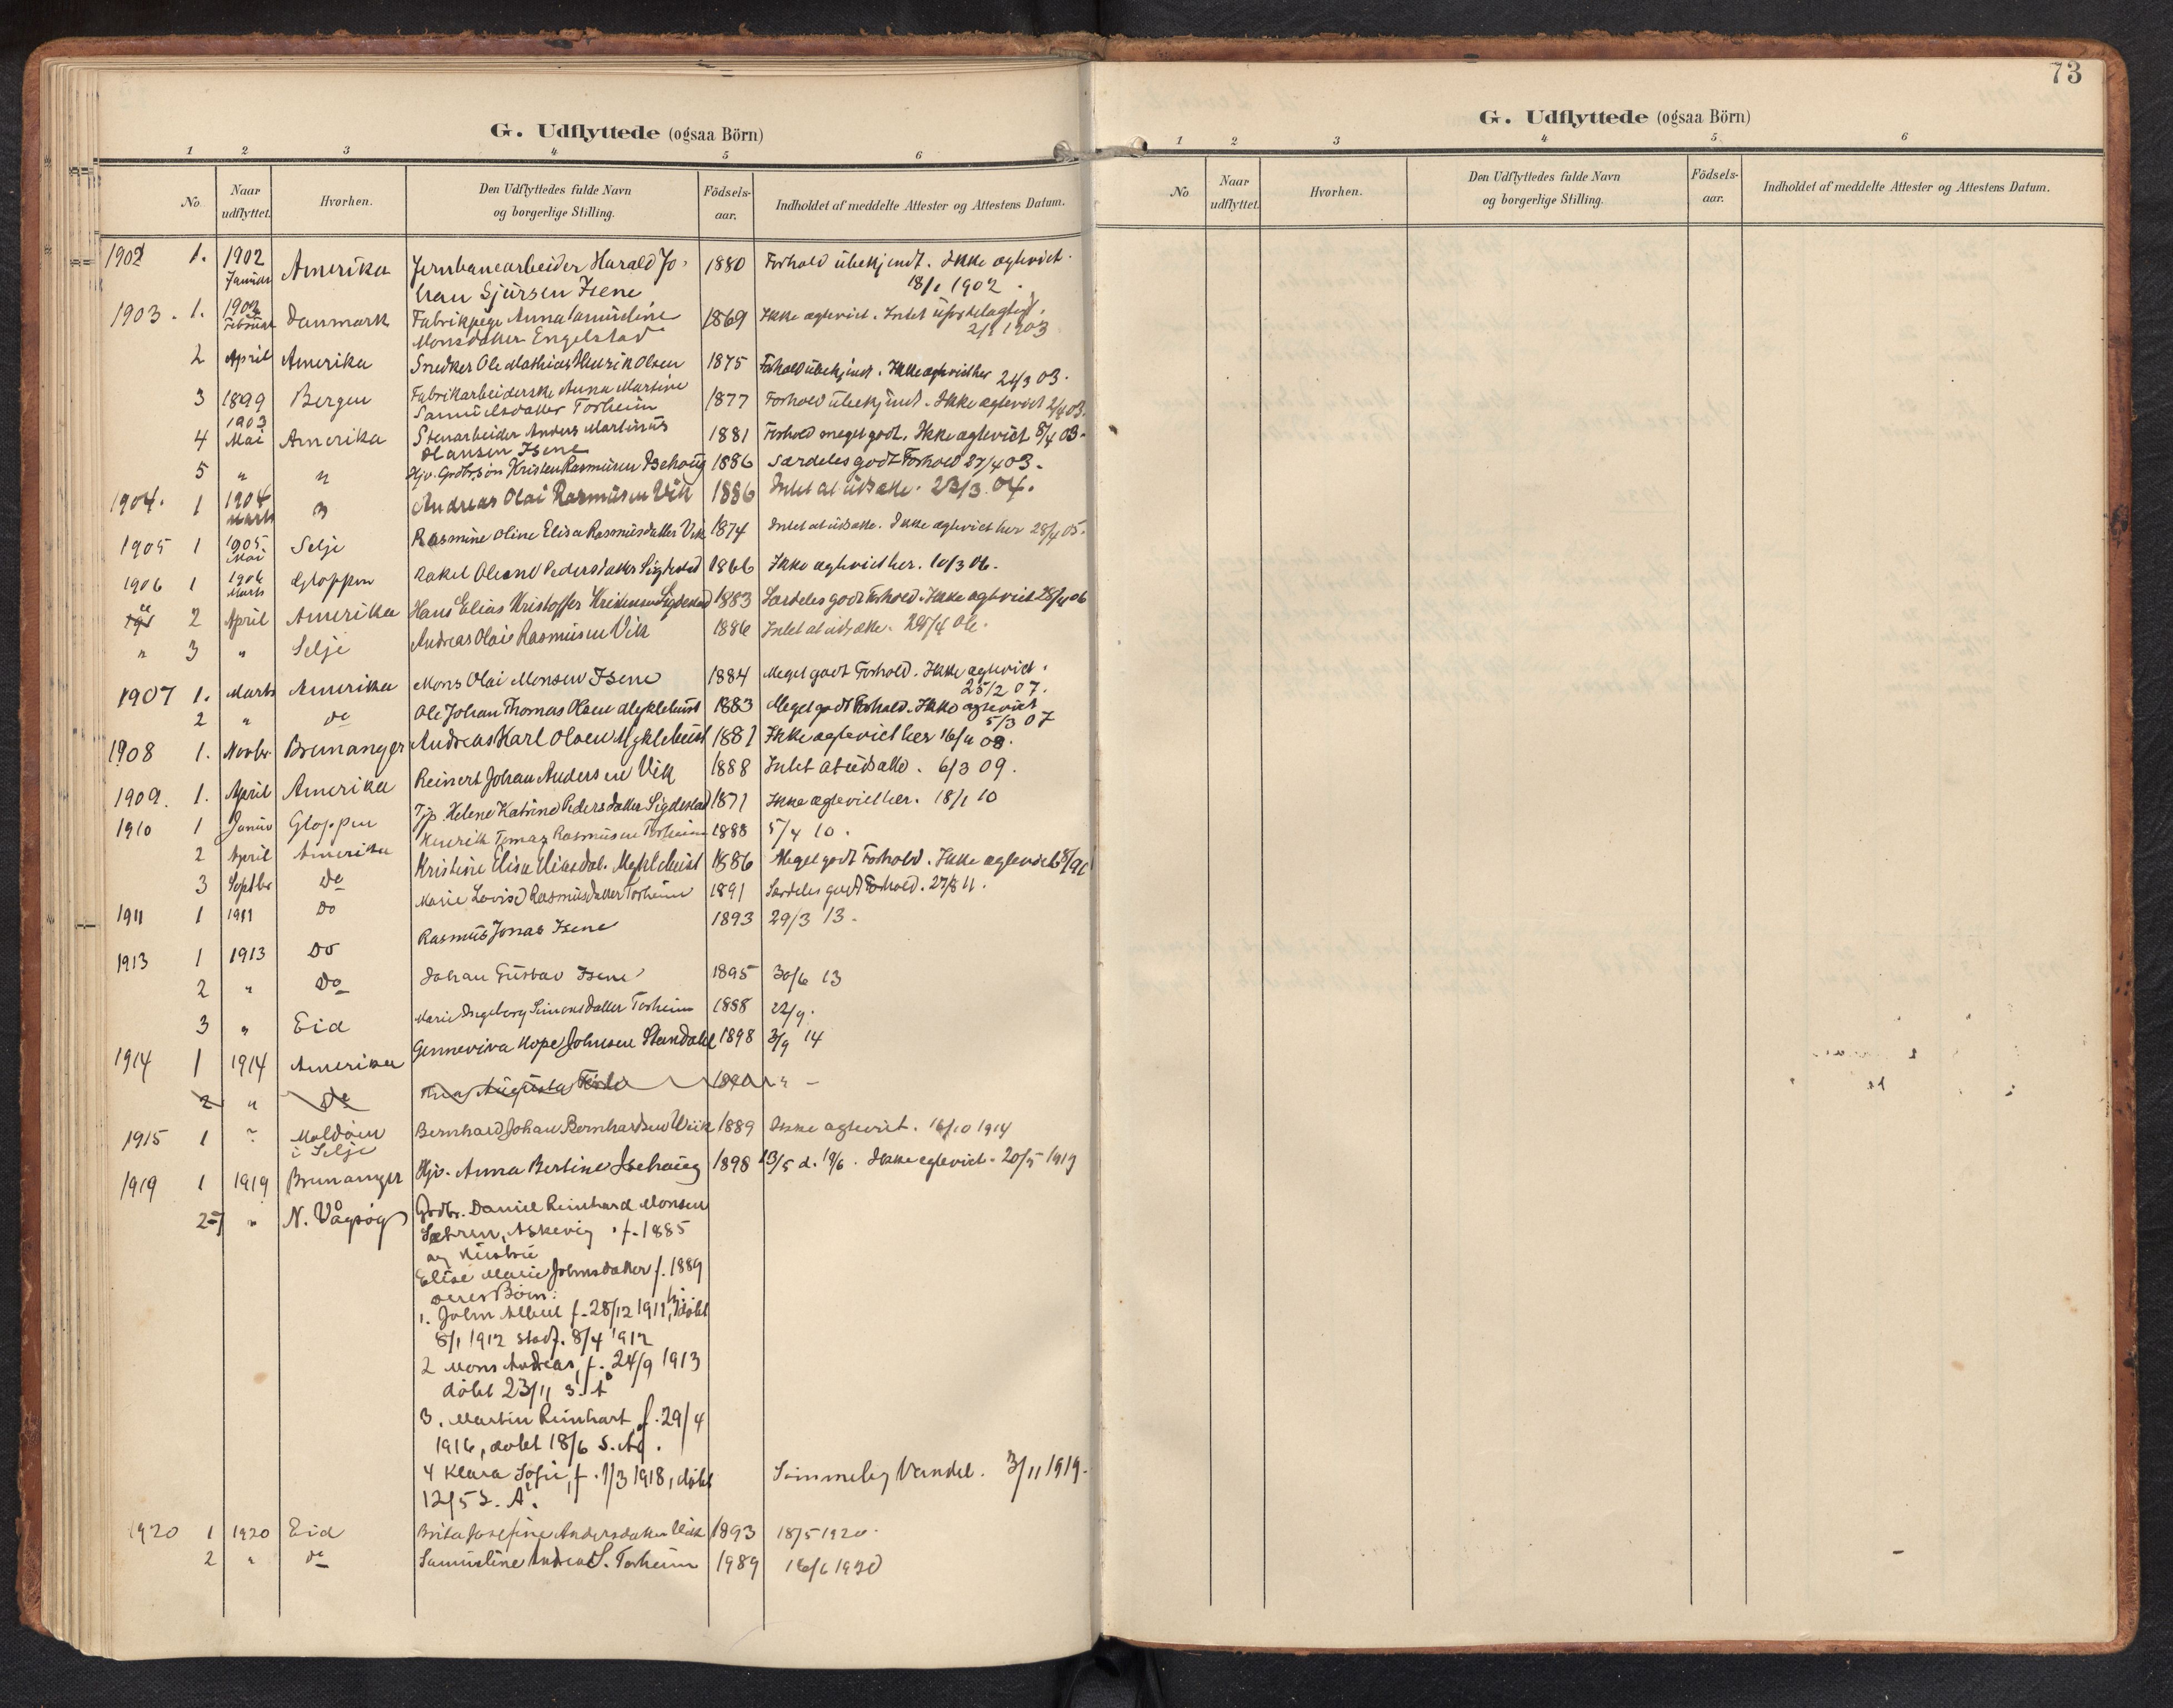 G. Udflyttede (ogsaa Börn)
1 2 3 4 5 6
No Naar udflyttet. Hvorhen. Den Udflyttedes fulde Navn og borgerlige Stilling. Födsels-aar. Indholdet af meddelte Attester og Attestens Datum.
1902 1. 1902 Januar Amerika Jernbanearbeider Harald Jo- 1880 Forhold ubekjendt. Ikke ægteviet.
han Sjursen Isene 18/1 1902.
1903. 1. 1903 Februar Danmark Fabrikpige Anna 1869 Ikke ægteviet. Intet
Monsdatter Engelstad 2/1 1903
2 April Amerika Snedker Ole Mathias Henrik Olsen 1875 Forhold ubekjendt. Ikke ægteviet her 24/3 03.
3 1899 Bergen Fabrikarbeiderske Anna Martine 1877 Forhold ubekjendt. Ikke ægteviet 2/4 03.
Samuelsdatter Torheim
4 1903 Mai Amerika Stenarbeider Anders Martinus 1881 Forhold meget godt. Ikke ægteviet 8/4 03.
Olausen Isene
5 " " Gjv. Grdbr.søn Kristen Rasmusen Isehaug 1886 Særdeles godt Forhold 27/4 03.
1904. 1 1904 Marts " Andreas Olai Rasmusen Vik 1886 Intet at udsætte. 23/3 04.
1905 1 1905 Mai Selje Rasmine Oline Elisa Rasmusdatter Vik 1874 Intet at udsætte. Ikke ægteviet her 28/4 05.
1906 1 1906 Marts Gloppen Rakel Oleane Pedersdatter Sigdestad 1866 Ikke ægteviet her. 10/3 06.
2 April Amerika Hans Elias Kristoffer Kristensen Sigdestad 1883 Særdeles godt Forhold. Ikke ægteviet 28/4 06
" 3 " Selje Andreas Olai Rasmusen Vik 1886 Intet at udsætte. 25/4 06.
1907 1. Marts Amerika Mons Olai Monsen Isene 1884 Meget godt Forhold. Ikke ægteviet.
25/2 07.
2 " do Ole Johan Thomas Olsen Myklebust 1883 Meget godt Forhold. Ikke ægteviet
5/3 07
1908 1. Novbr. Bremanger Andreas Karl Olsen Myklebust 1881 Ikke ægteviet her 16/11 08.
1909. 1. April Amerika Reinert Johan Andersen Vik 1888 Intet at udsætte. 6/3 09.
1910 1 Januar Gloppen Tjp. Helene Katrine Pedersdatter Sigdestad 1871 Ikke ægteviet her. 18/1 10
2 April Amerika Henrik Tomas Rasmusen Torheim 1888 5/4 10.
3 Septbr do Kristine Elisa Eliasdat. Myklebust 1886 Meget godt Forhold. Ikke ægteviet
1911 1 1911 Do Marie Lovise Rasmusdatter Torheim 1891 Særdeles godt Forhold. 27/3 11.
1913 1 1913 Do Rasmus Jonas Isene 1893 29/3 13.
2 " Do Johan Gustav Isene 1895 30/6 13
3 " Eid Marie Ingeborg Simonsdatter Torheim 1888 22/9.
1914 1 1914 Amerika Genneviva Hope Johnsen Standahl 1898 3/9 14
2 " do Augusta " –
1915 1 ? Moldøen i Selje Bernhard Johan Bernhardsen Weik 1889 Ikke ægteviet. 16/10 1914
1919 1 1919 Bremanger Gjv. Anna Bertine Isehaug 1898 13/5 d. 19/6. Ikke ægteviet. 20/5 1919
2-7 " N. Vågsøy Grdbr. Daniel Reinhard Monsen
Sætren, Askevig f. 1885
og Hustru
Elise Marie Johnsdatter f. 1889
deres Børn:
1. John Albert f. 28/12 1911, døbt
8/1 1912 stadf. 8/4 1912
2 Mons Andreas, f. 24/9 1913
døbt 23/11 s. å
3. Martin Reinhart f. 29/4
1916, døbt 18/6 s. A.
4 Klara Sofie, f. 1/3 1918, døbt Sømmelig Vandel. 3/11 1919.
12/5 s. A.
1920 1 1920 Eid Brita Josefine Andersdatter Vik 1893 18/5 1920.
2 " do Samueline Andrea S. Torheim 1989 16/6 1920
73
G. Udflyttede (ogsaa Börn)
1 2 3 4 5 6
No Naar udflyttet. Hvorhen. Den Udflyttedes fulde Navn og borgerlige Stilling. Födsels-aar. Indholdet af meddelte Attester og Attestens Datum.